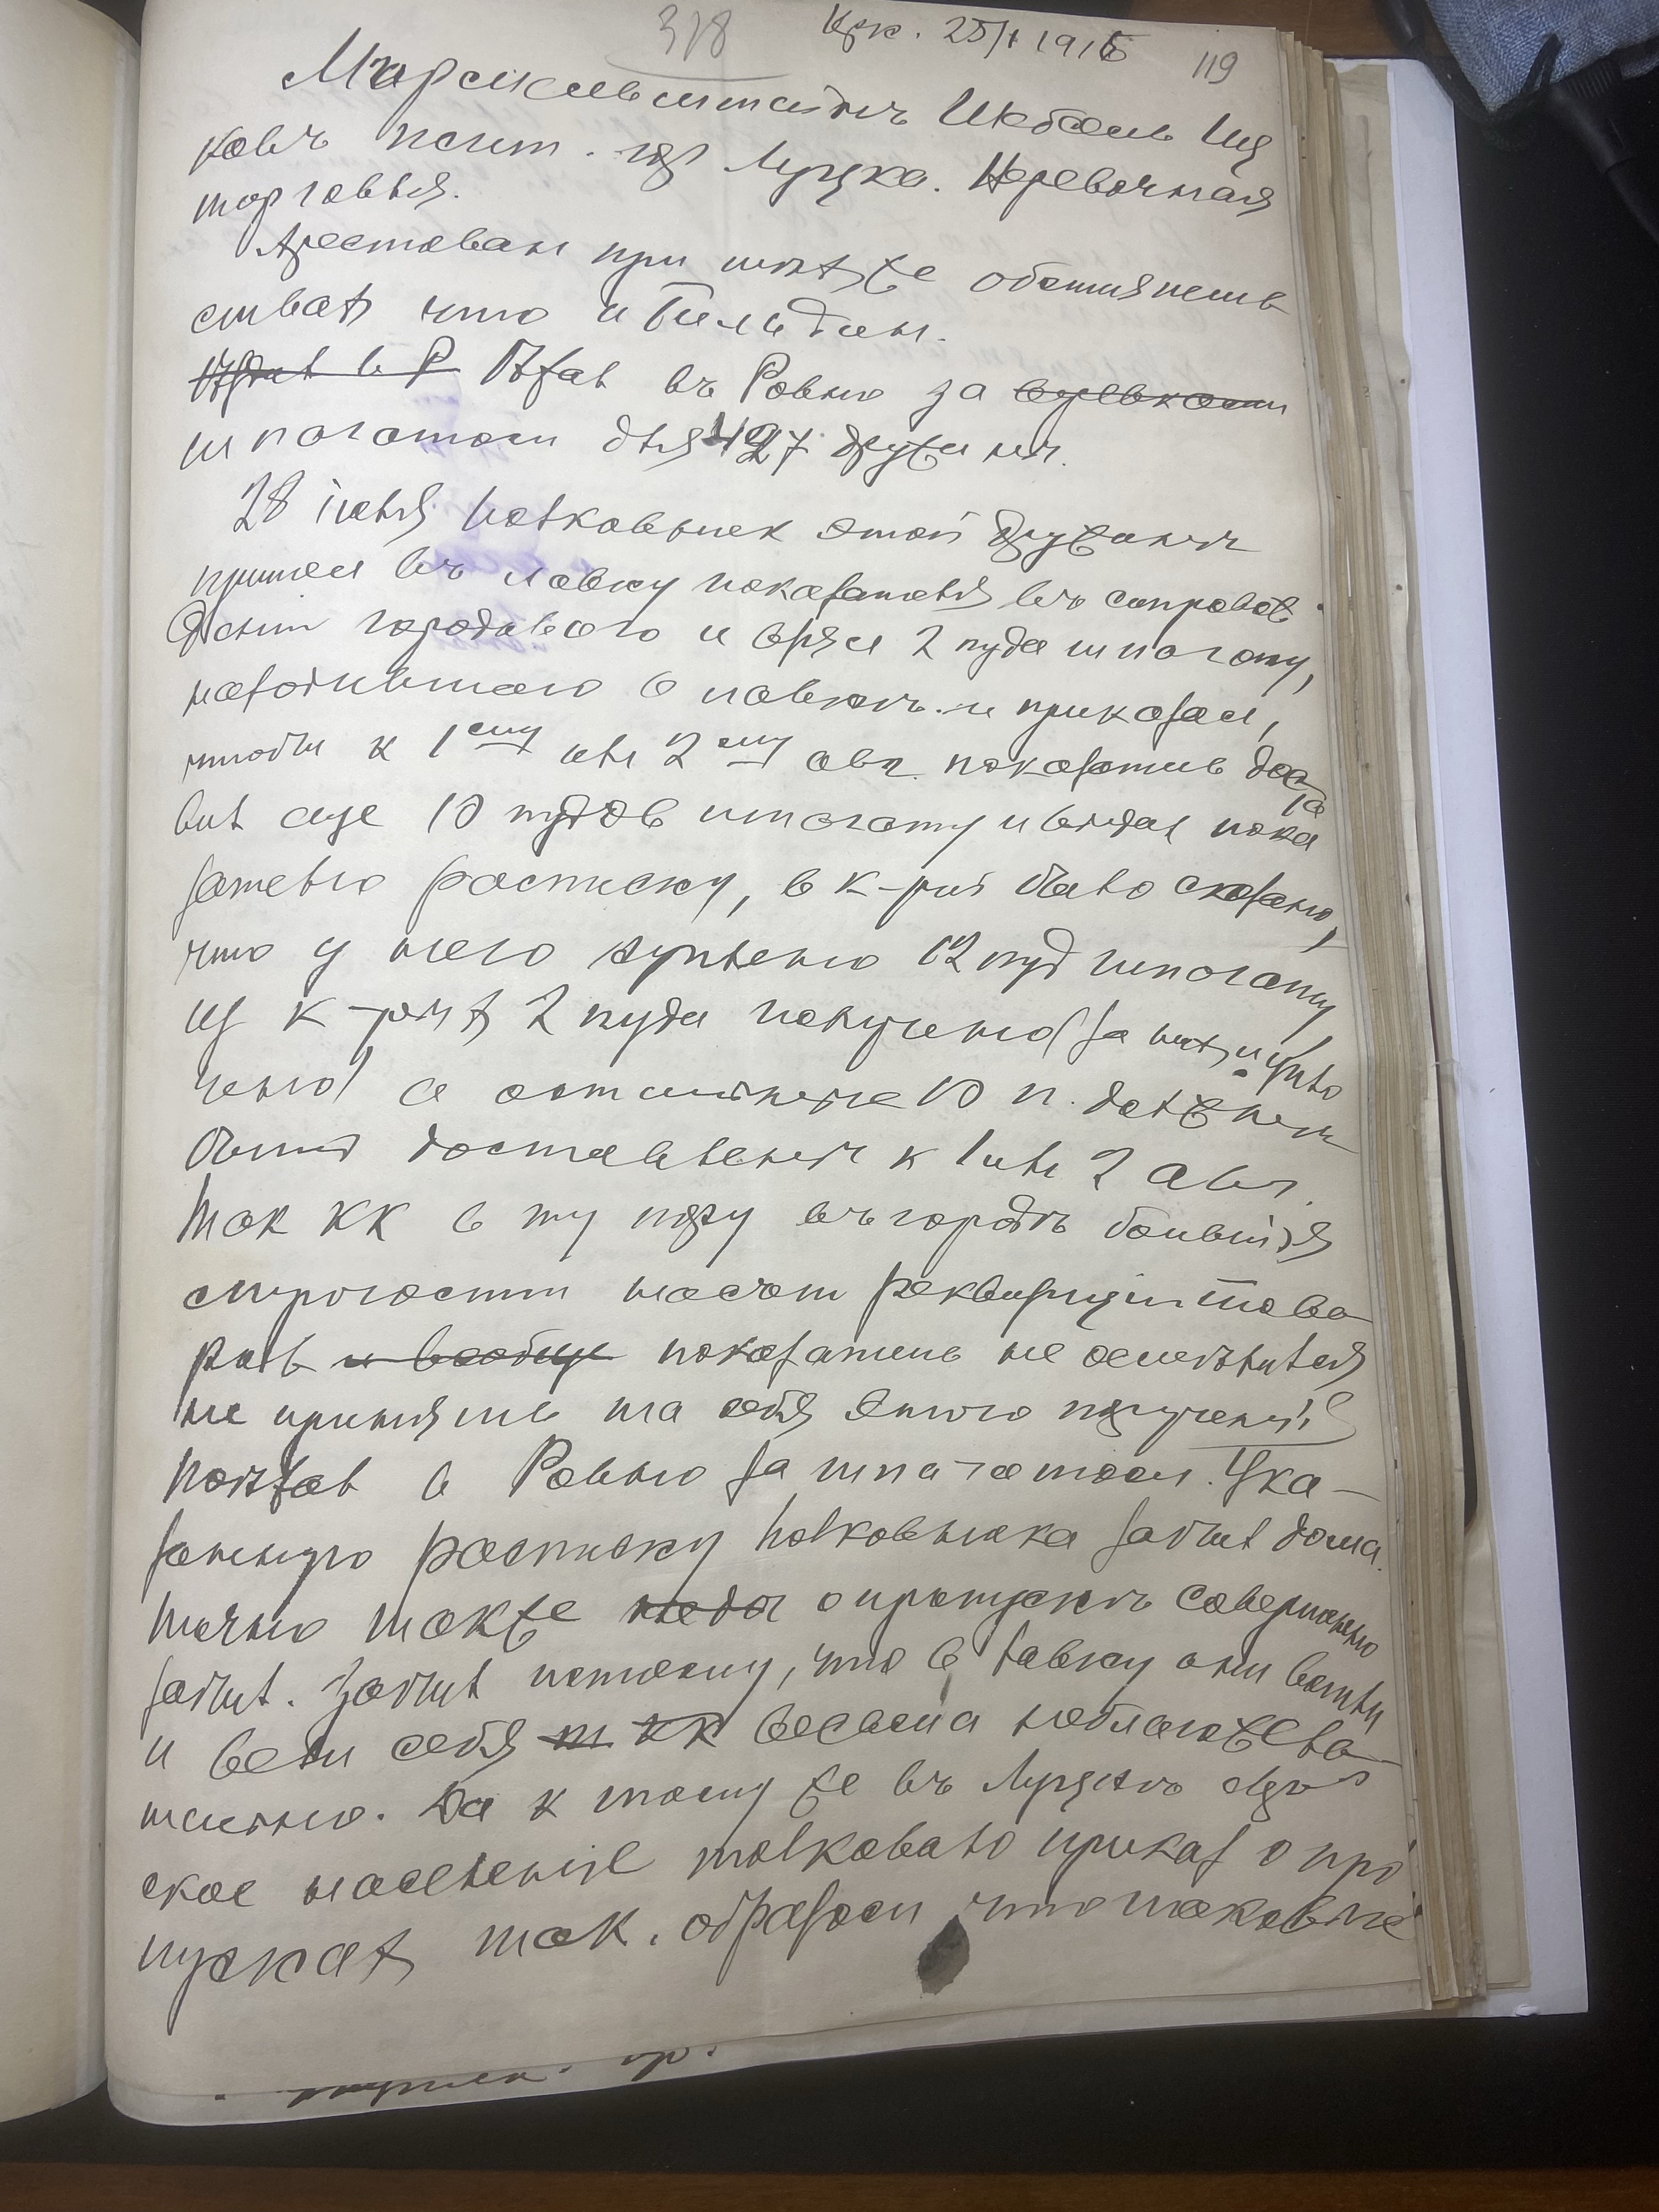 318 Крк. 25/I 1916 119
Мардкельштейнъ Шебсель Иц
ковъ жит. гор Луцка. Веревочная
торговля.
Арестован при тѣх же обстоятель
ствах что и Гильдин.
Ѣхал въ Ровно за
шпагатом для 427 дружины.
28 іюля полковник этой дружины
пришел въ лавку показателя въ сопровож
деніи городового и взял 2 пуда шпагату,
находившаго в лавкѣ и приказал,
чтобы к 1ому или 2ому авг. показатель доста
вил еще 10 пудов шпагату и выдал пока
зателю расписку, в к-рой было сказано,
что у него куплено 12 пуд шпагату
из к-рых 2 пуда получено (за них и упла
чено) а остальные 10 п. должны
быть доставлены к 1 или 2 авг.
Так кк в ту пору въ городѣ большія
строгости насчет реквизиціи това
ров и вообще показатель не осмѣлился
не принять на себя этого порученія
поѣхал в Ровно за шпагатом. Ука-
занную расписку полковника забыл дома.
Точно также о пропускѣ совершенно
забыл. Забыл потому, что в лавку они вошли
и вели себя т кк весьма неблагожела
тельно. Да к тому же въ Луцкѣ евр
ское населеніе толковало приказ о про
пусках так. образом что таковые